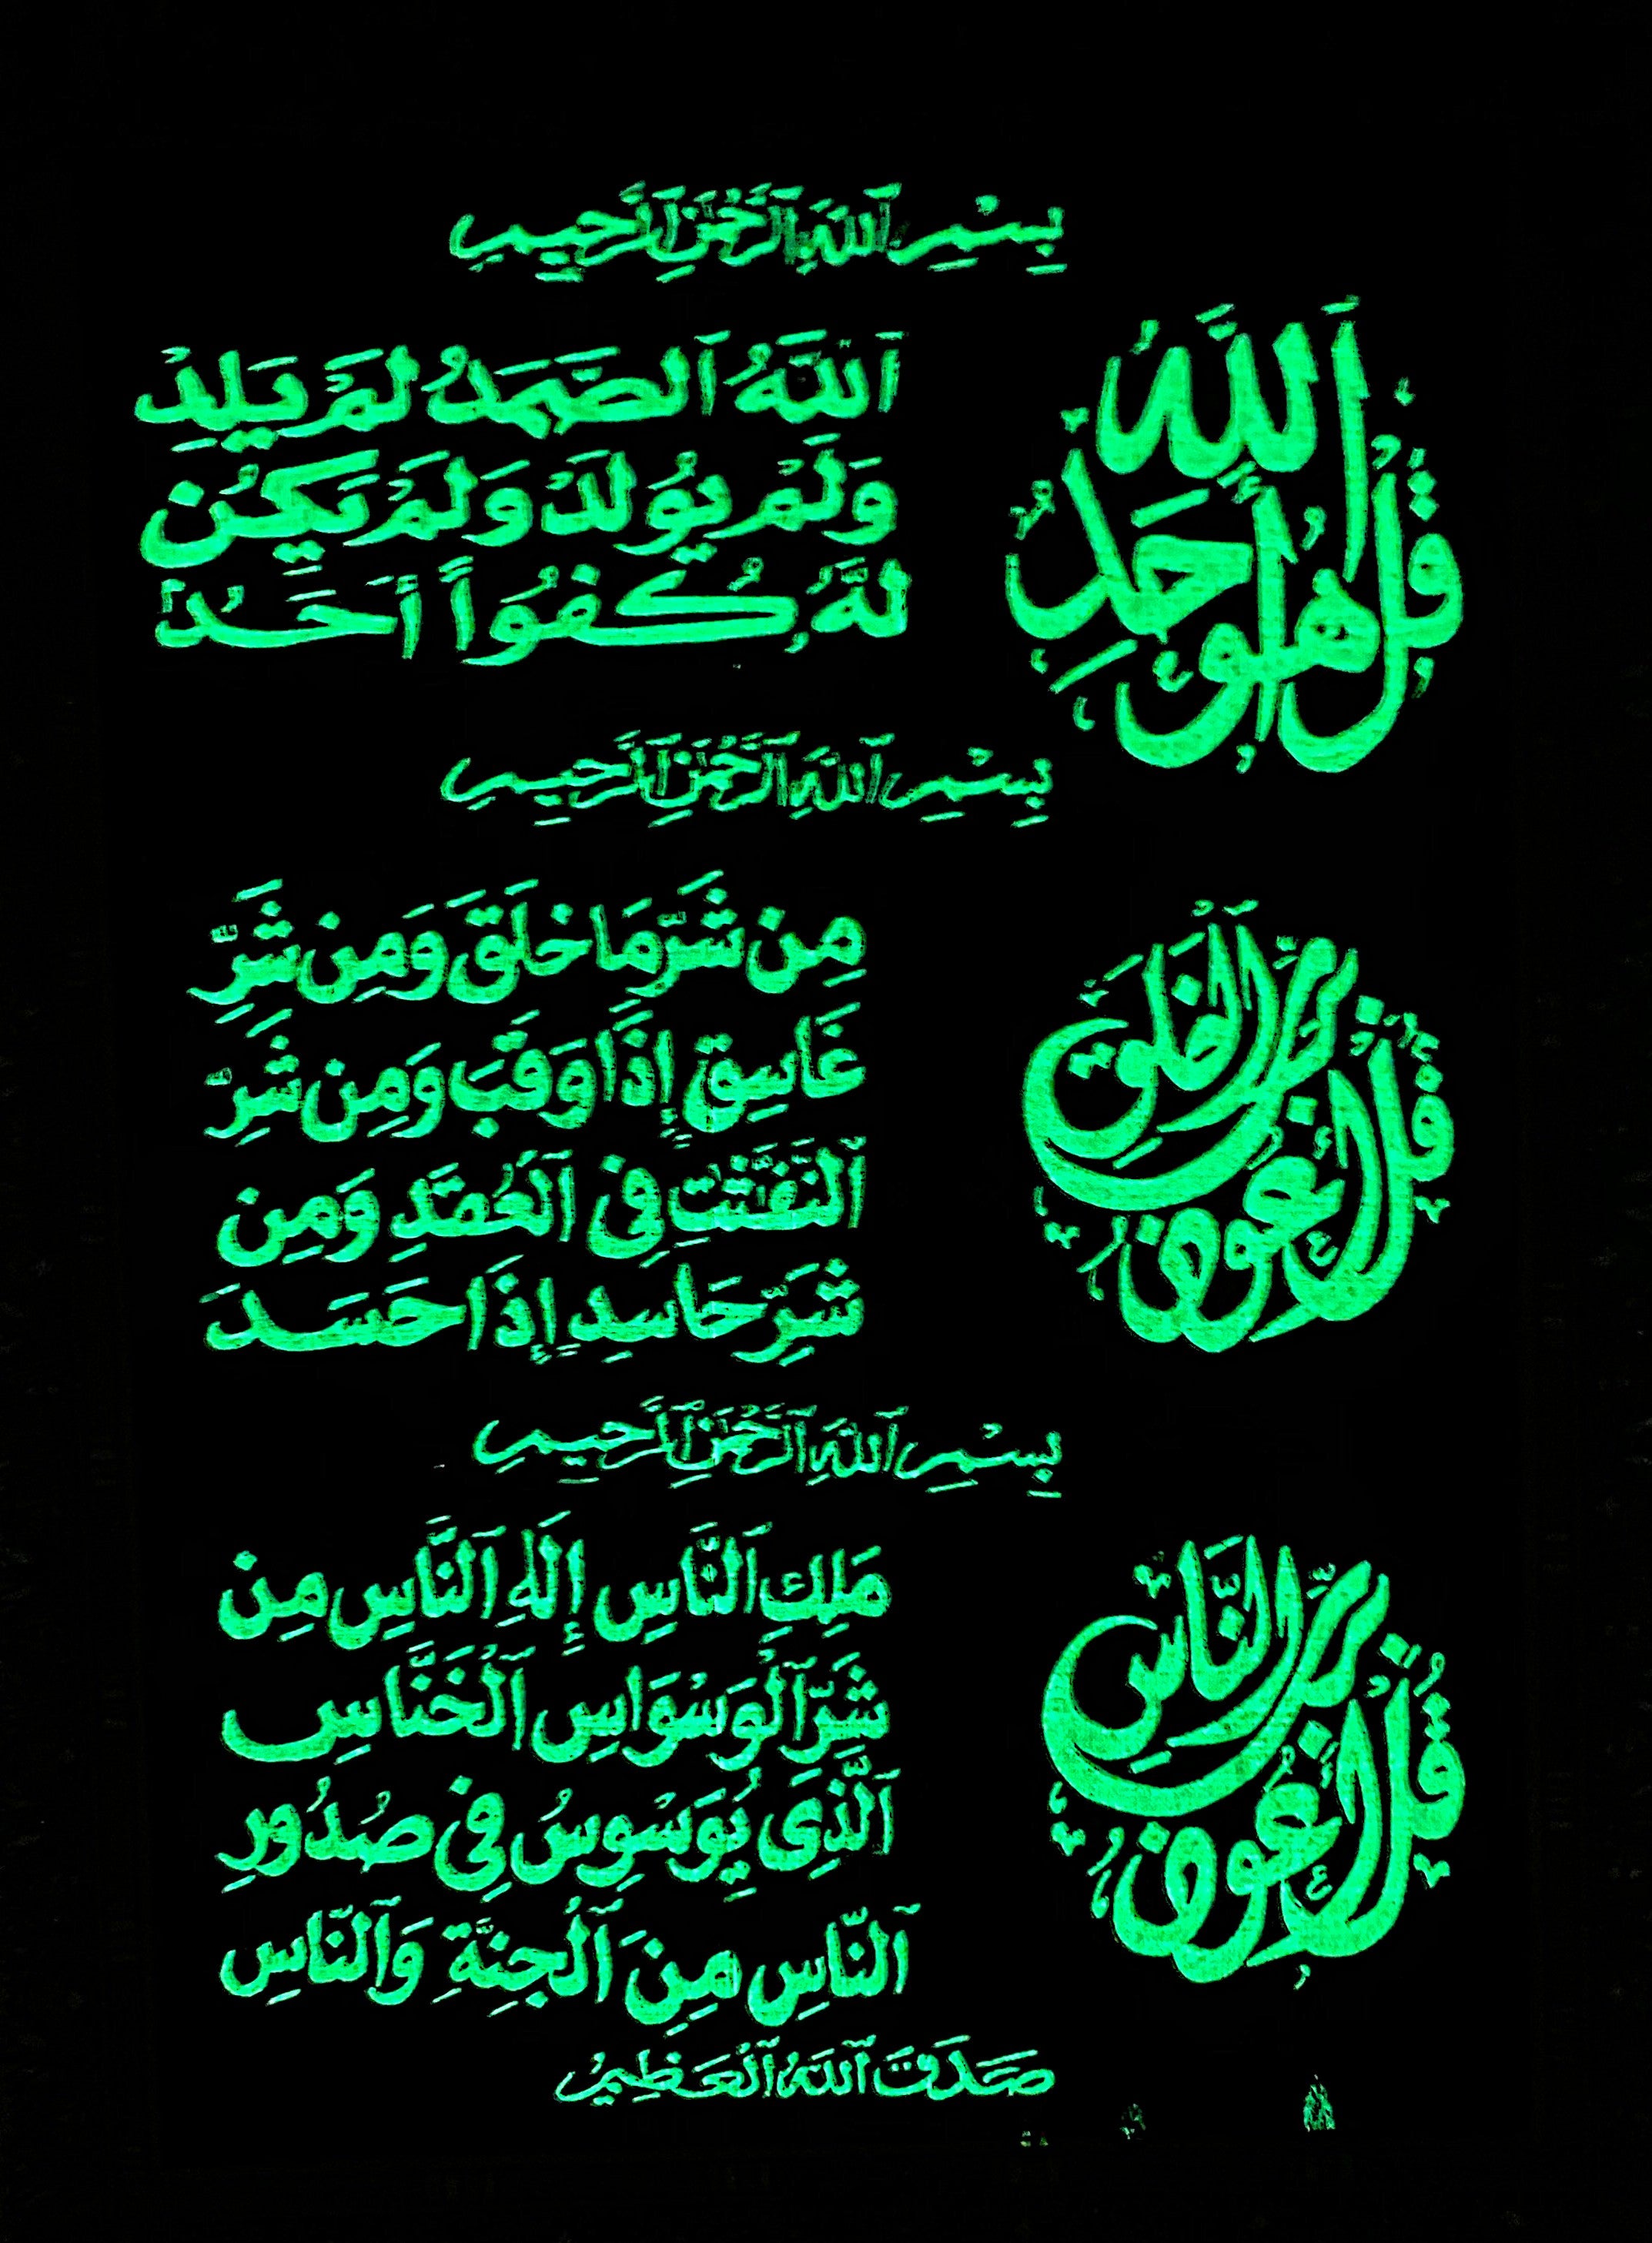 بِسْمِ ٱللَّهِ ٱلرَّحْمَٰنِ ٱلرَّحِيمِ
قُلْ هُوَ ٱللَّهُ أَحَدٌ
ٱللَّهُ ٱلصَّمَدُ لَمْ يَلِدْ
وَلَمْ يُولَدْ وَلَمْ يَكُن
لَّهُ كُفُوًا أَحَدٌ
بِسْمِ ٱللَّهِ ٱلرَّحْمَٰنِ ٱلرَّحِيمِ
قُلْ أَعُوذُ بِرَبِّ ٱلْفَلَقِ
مِن شَرِّ مَا خَلَقَ وَمِن شَرِّ
غَاسِقٍ إِذَا وَقَبَ وَمِن شَرِّ
ٱلنَّفَّٰثَٰتِ فِى ٱلْعُقَدِ وَمِن
شَرِّ حَاسِدٍ إِذَا حَسَدَ
بِسْمِ ٱللَّهِ ٱلرَّحْمَٰنِ ٱلرَّحِيمِ
قُلْ أَعُوذُ بِرَبِّ ٱلنَّاسِ
مَلِكِ ٱلنَّاسِ إِلَٰهِ ٱلنَّاسِ مِن
شَرِّ ٱلْوَسْوَاسِ ٱلْخَنَّاسِ
ٱلَّذِى يُوَسْوِسُ فِى صُدُورِ
ٱلنَّاسِ مِنَ ٱلْجِنَّةِ وَٱلنَّاسِ
صَدَقَ ٱللَّهُ ٱلْعَظِيمُ